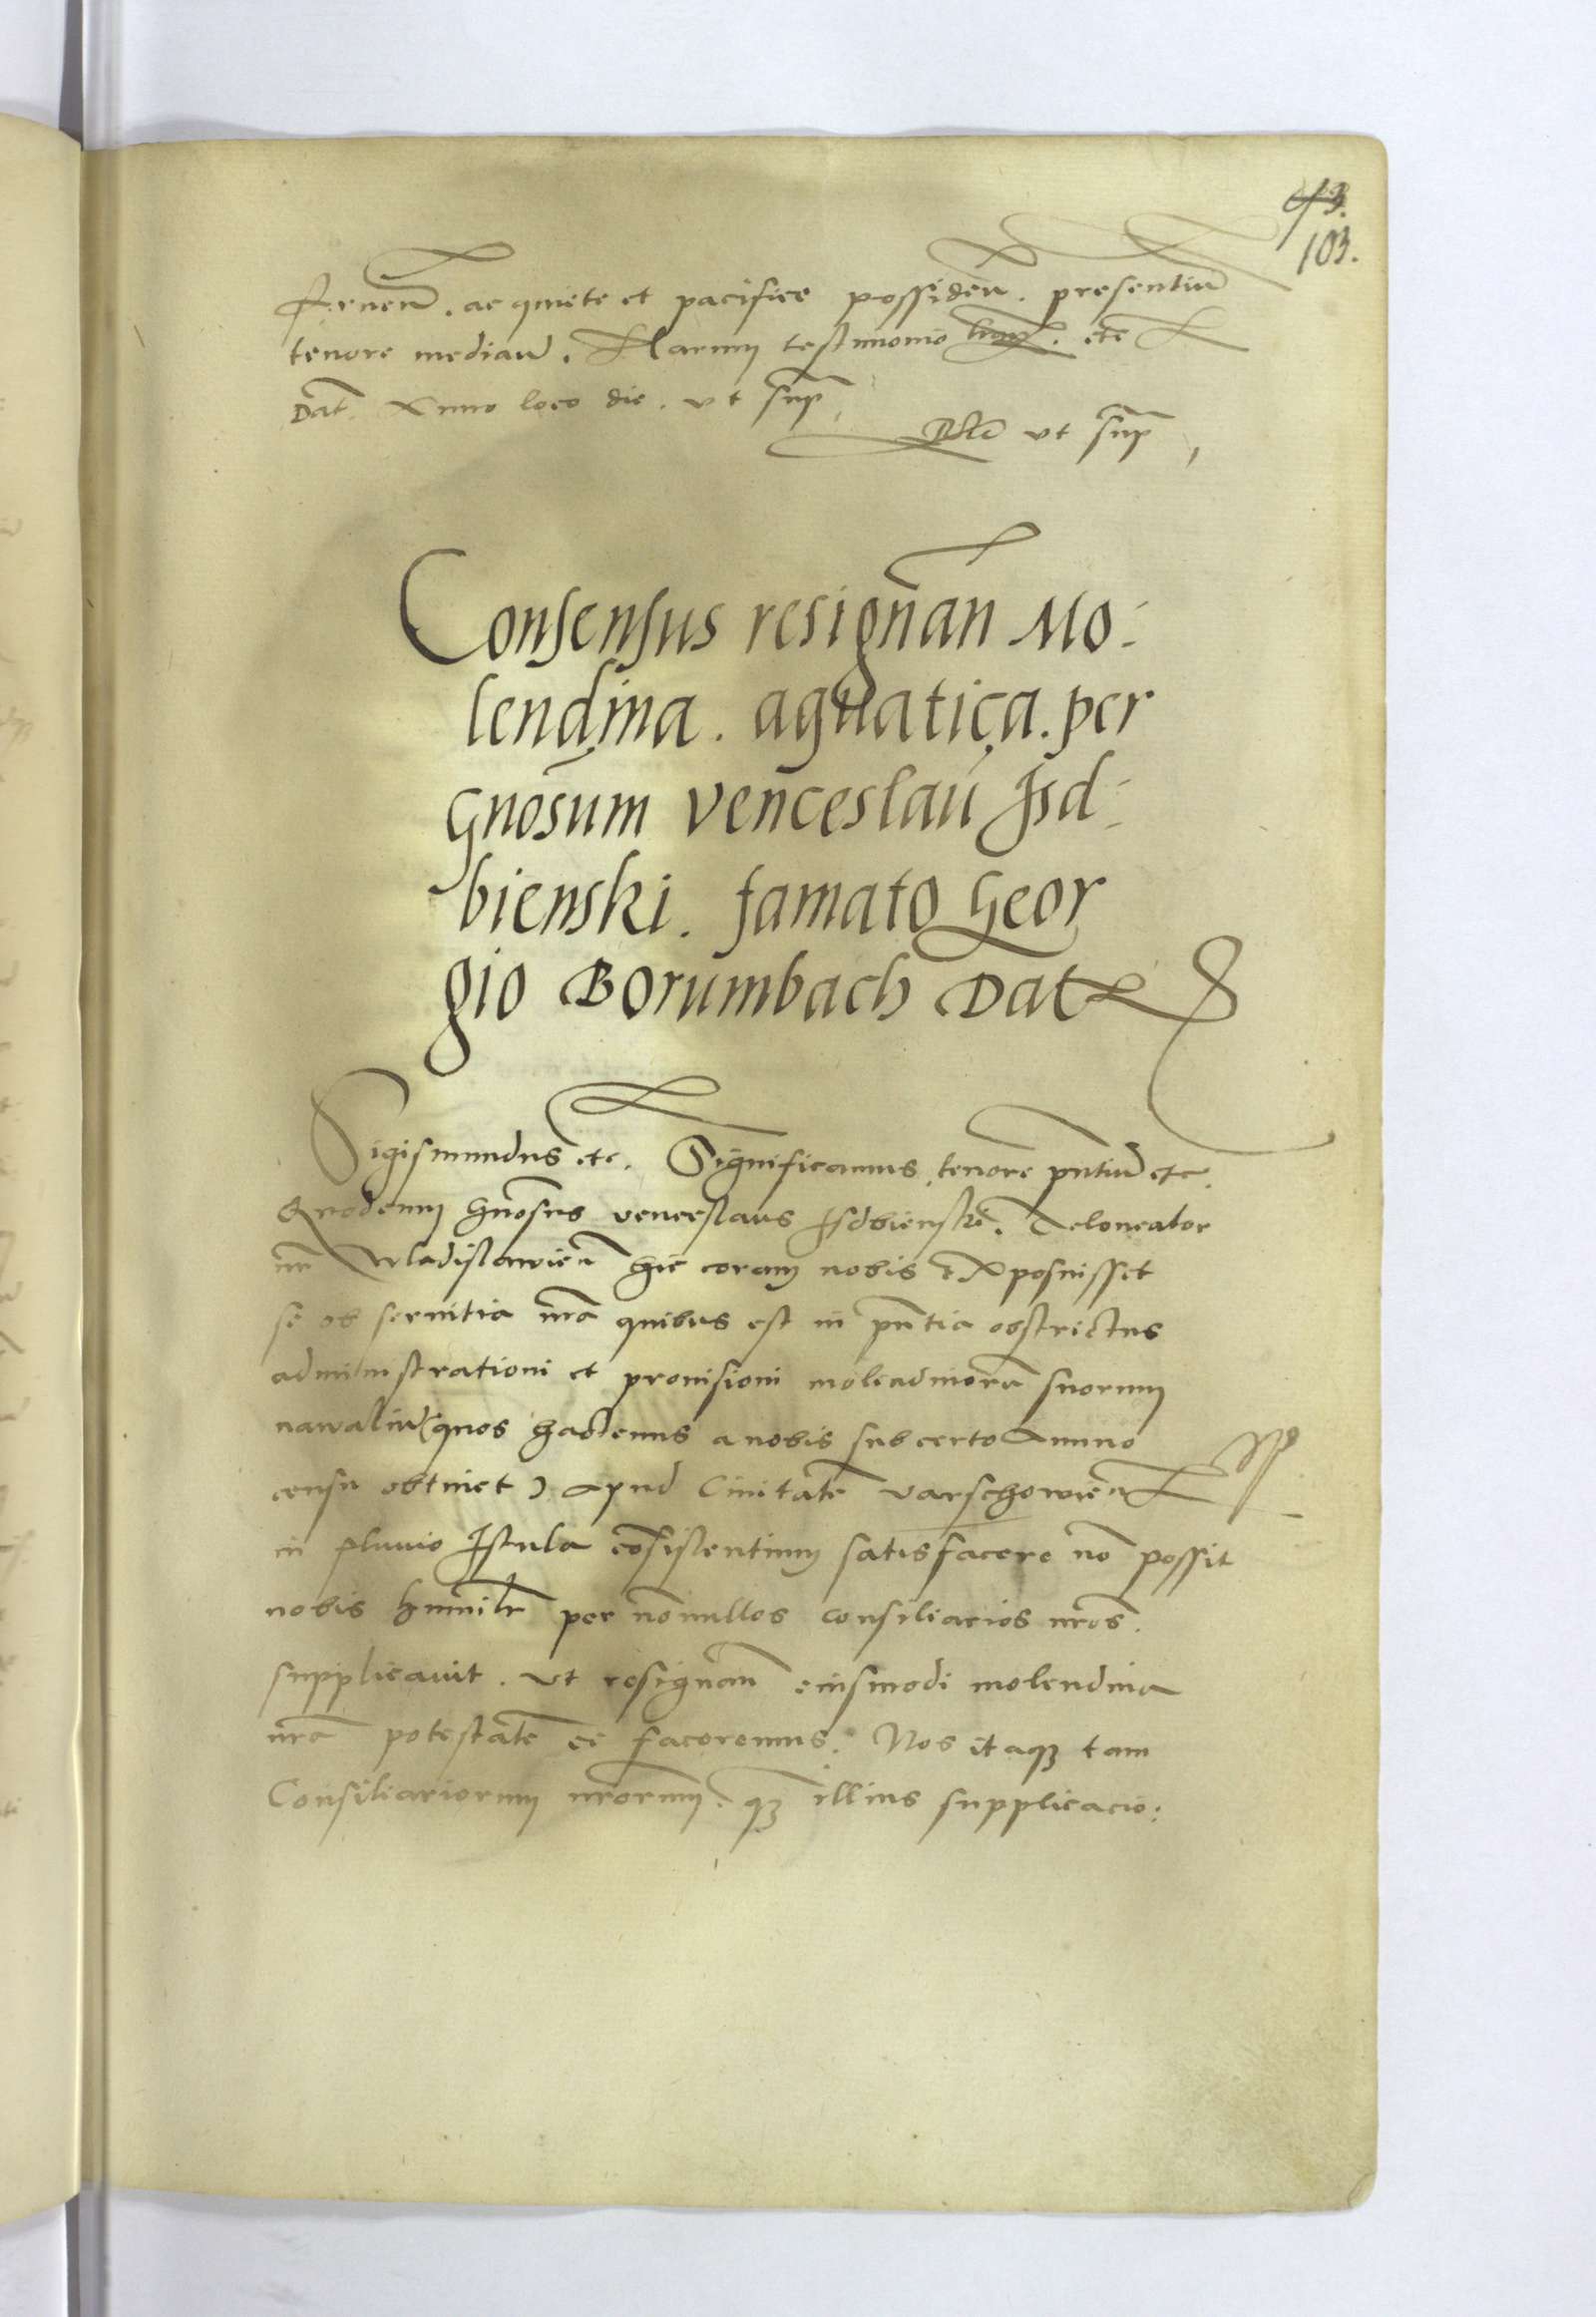 93.
103.
fruen. ac quiete et pacifice possiden. presentium
tenore median. Harum testimonio etc
Dat. Anno loco die. vt sup
Rlo vt sup
Consensus resignan Mo-
lendina. aquatica. per
Gnosum Venceslau Jsd-
bienski. famato Geor
gio Borumbach Dat
Sigismundus etc. Significamus tenore pntium etc.
Quodcum Gnosus venceslaus Jsdbienski. Teloneator
nr Wladislawien hic coram nobis exposuisset
se ob seruitia nra quibus est in pntia obstrictus
administrationi et prouisioni molendinoru suorum
nawaliu (quos hactenus a nobis sub certo Annuo
censu obtinet) apud Ciuitate Varschowien
in fluuio Jstula cosistentium satisfacere no possit
nobis humilr per nonullos consiliarios nros.
supplicauit. vt resignan eiusmodi molendina
nra potestate ei faceremus. Nos itaq tam
Consiliariorum nrorum. q illius supplicacio: